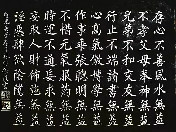 存心不善風水無益
不孝父母奉神無益
兄弟不和交友無益
行止不端讀書無益
心高氣傲博學無益
作事乖張聰明無益
不惜元氣服藥無益
時運不通妄求無益
妄取人財布施無益
淫惡肆欲陰騭無益